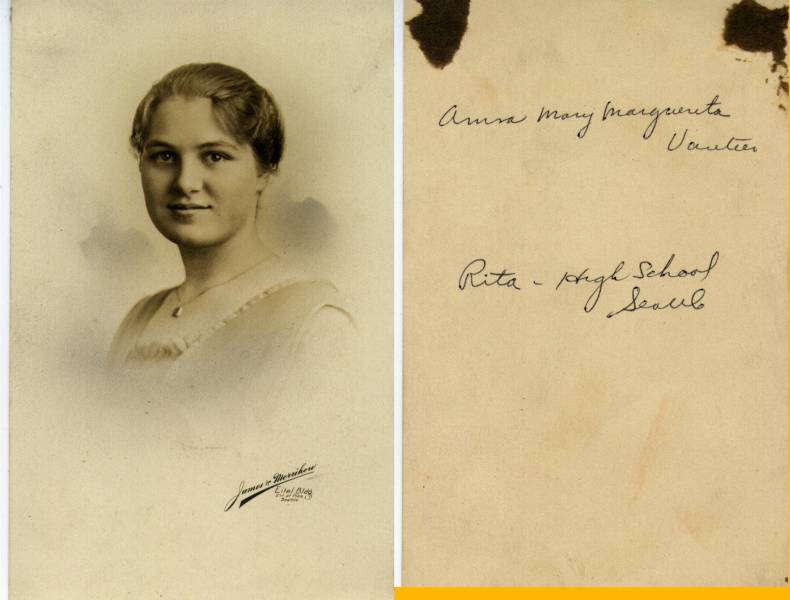 James & Merrihew
Eitel Bldg
2nd at Pike
Seattle
Anna Mary Marguerita
Vautier
Rita - High School
Seattle